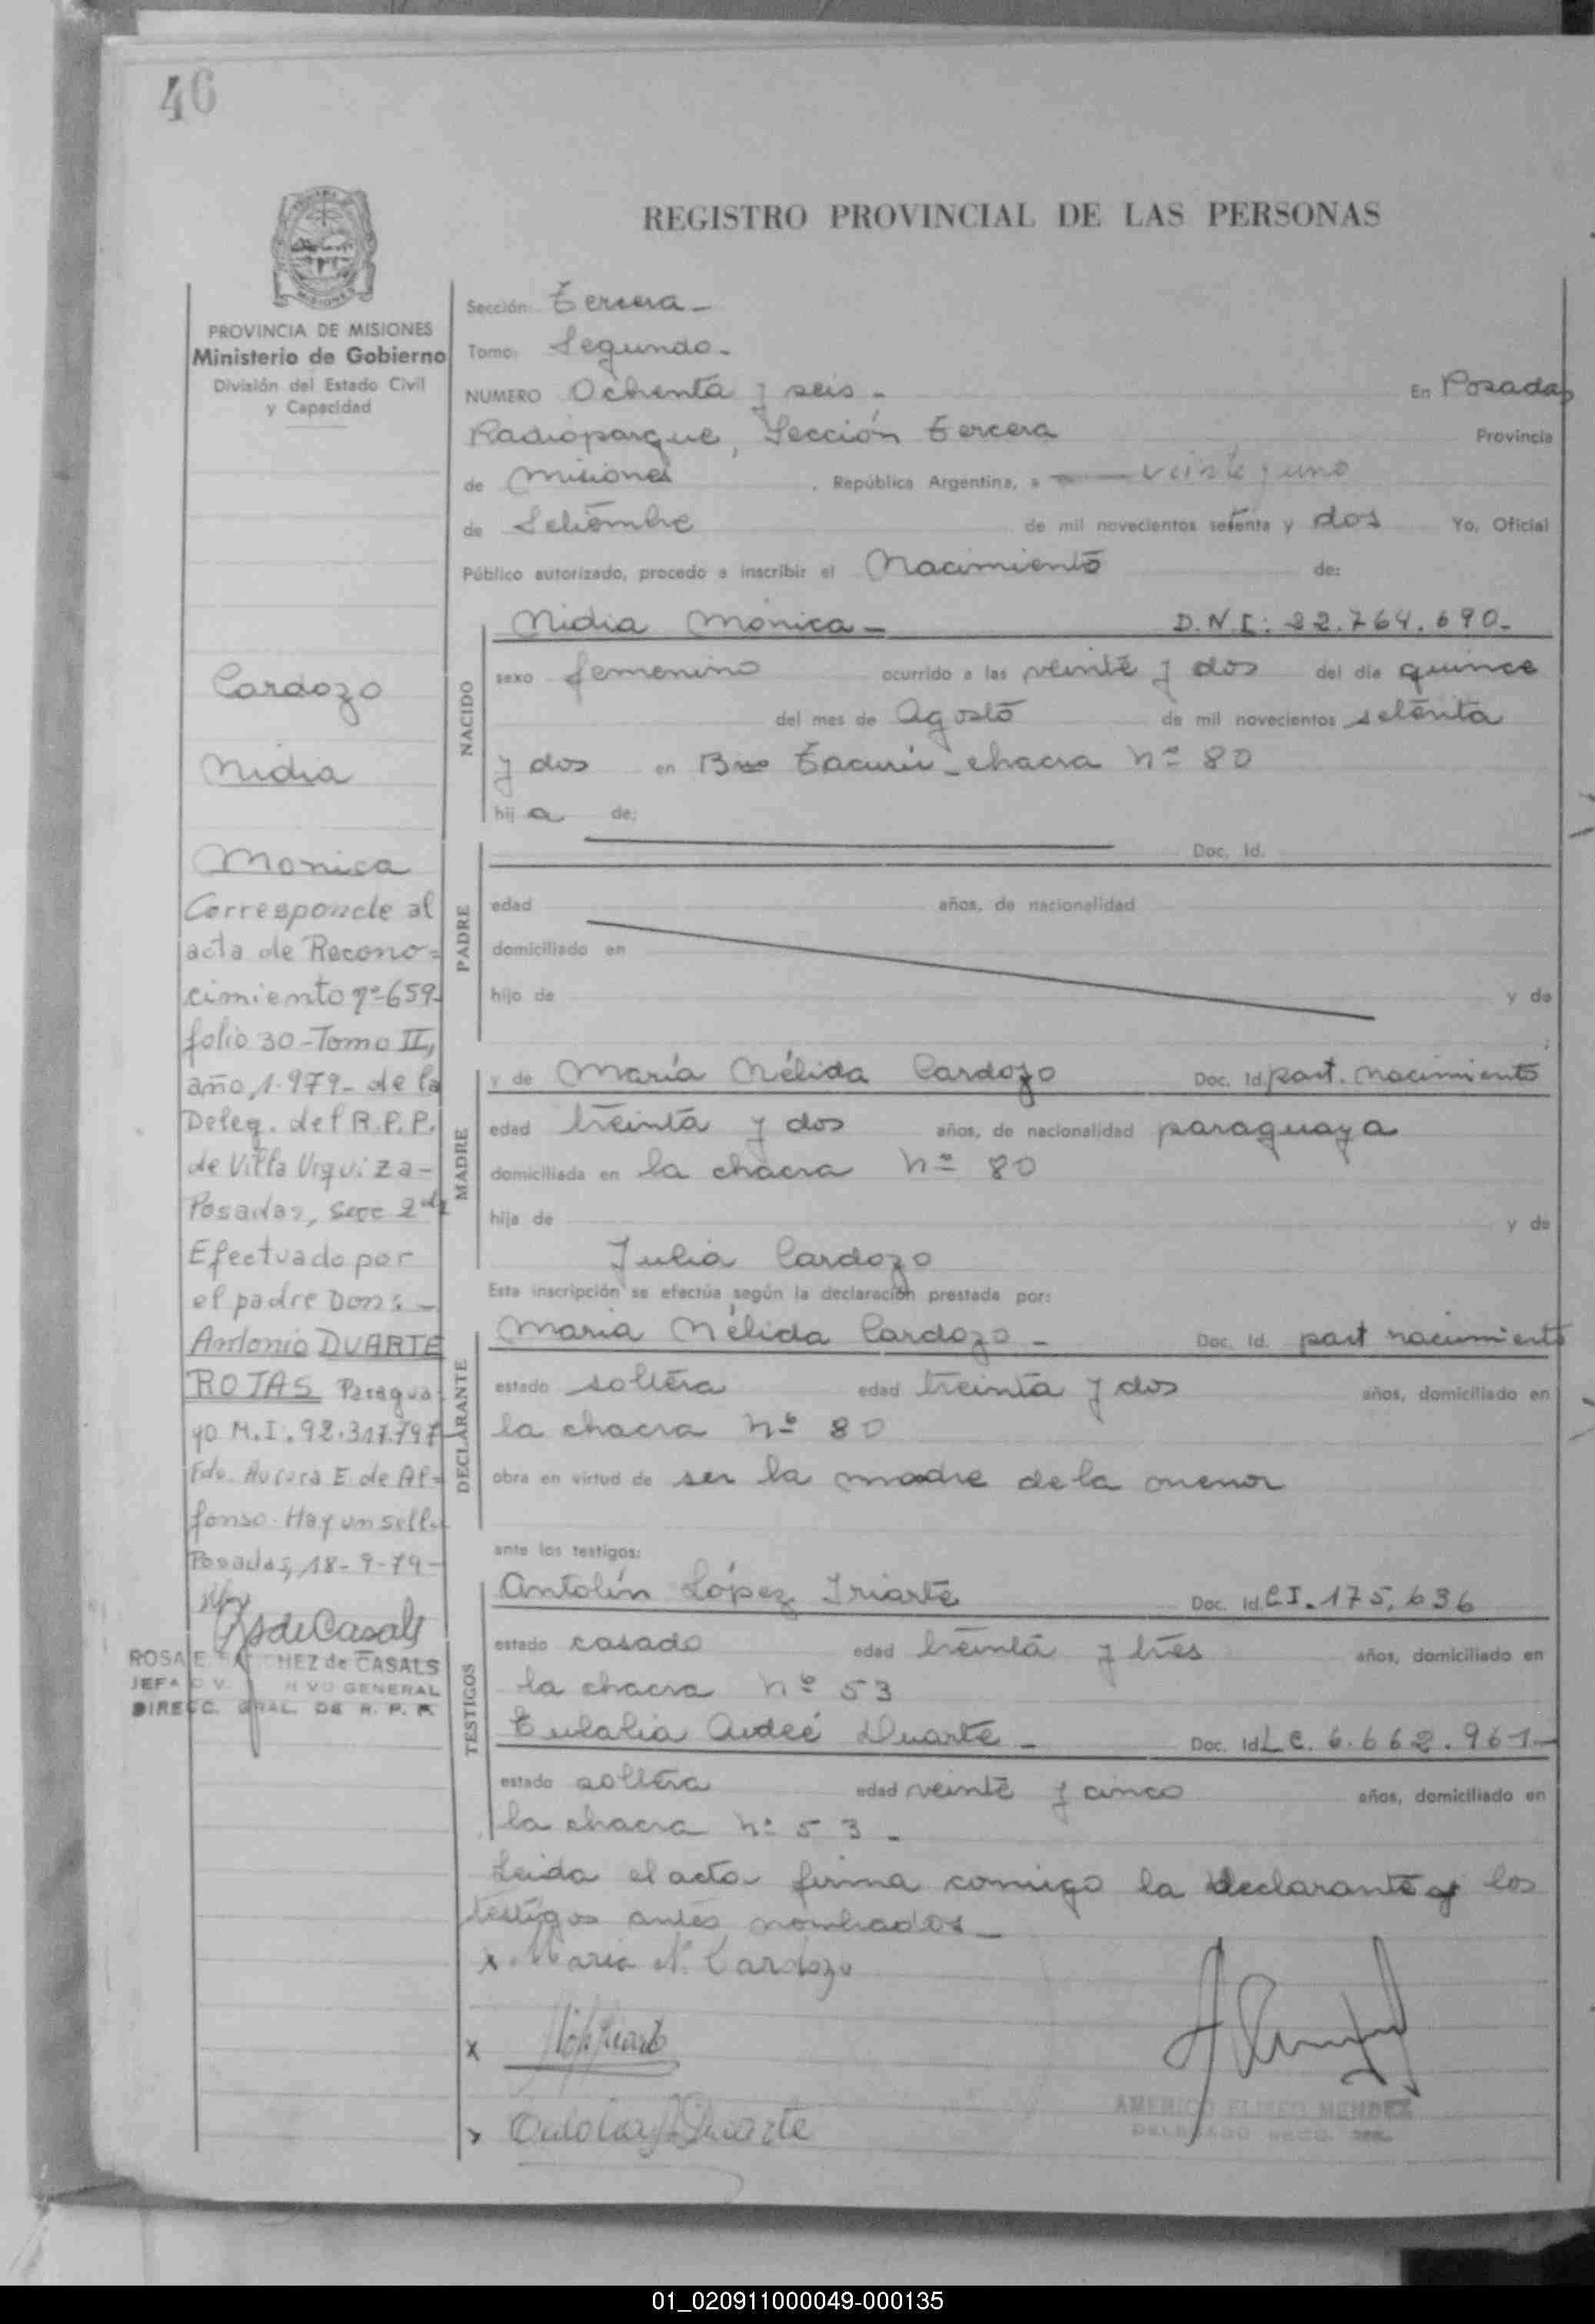 46
REGISTRO PROVINCIAL DE LAS PERSONAS
PROVINCIA DE MISIONES
Ministerio de Gobierno
División del Estado Civil
y Capacidad
Cardozo
Nidia
Monica
Corresponde al
acta de Recono=
cimiento nº 659-
folio 30-Tomo II,
año 1.979- de la
Deleg. del R.P.P.
de Villa Urquiza-
Posadas, Secc 2da
Efectuado por
el padre Don: -
Antonio DUARTE
ROJAS Paragua
yo M.I. 92.317.797
Fdo. Aurora E. de Al=
fonso. Hay un sello
Posadas, 18-9-79-
RSdeCasals
ROSA E. HEZ de CASALS
JEFA VO GENERAL
DIRECC. GRAL. DE R. P. P.
Sección: Tercera-
Tomo: Segundo-
NUMERO Ochenta y seis - En Posadas
Radioparque, Sección Tercera Provincia
de Misiones, República Argentina, a veinte y uno
de Setiembre de mil novecientos setenta y dos Yo, Oficial
Público autorizado, procedo a inscribir el Nacimiento de:
NACIDO
Nidia Mónica- D.N.I: 22.764.690-
sexo femenino ocurrido a las veinte y dos del día quince
del mes de Agosto de mil novecientos setenta
y dos en Bro Tacurú - chacra nº 80
hij a de:
PADRE
Doc. Id.
edad años, de nacionalidad
domiciliado en
hijo de y de
MADRE
y de María Nélida Cardozo Doc. Id part. nacimiento
edad treinta y dos años, de nacionalidad paraguaya
domiciliada en la chacra nº 80
hija de y de
Julia Cardozo
Esta inscripción se efectúa según la declaración prestada por:
DECLARANTE
María Nélida Cardozo - Doc. Id. part nacimiento
estado soltera edad treinta y dos años, domiciliado en
la chacra nº 80
obra en virtud de ser la madre de la menor
ante los testigos:
TESTIGOS
Antolín López Iriarte Doc. Id. C I. 175,636
estado casado edad treinta y tres años, domiciliado en
la chacra nº 53
Eulalia Duarte - Doc. Id L C. 6.662.961-
estado soltera edad veinte y cinco años, domiciliado en
la chacra nº 53 -
Leida el acta firma comigo la declarante y los
testigos antes nombrados -
x Maria N. Cardozo
x
x Duarte
AMERICO ELISEO MENDEZ
01_020911000049-000135